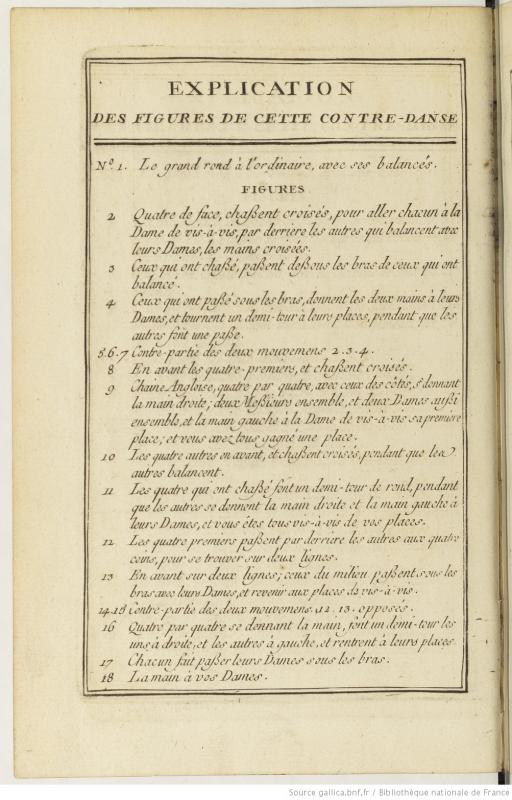 EXPLICATION
DES FIGURES DE CETTE CONTRE-DANSE
N.º 1. Le grand rond à l'ordinaire, avec ses balancés.
FIGURES
2 Quatre de face, chaßent croisés, pour aller chacun à la
Dame de vis-à-vis, par derriere les autres qui balancent avec
leurs Dames, les mains croisées.
3 Ceux qui ont chaßé, paßent deßous les bras de ceux qui ont
balancé.
4 Ceux qui ont paßé sous les bras, donnent les deux mains à leurs
Dames, et tournent un demi-tour à leurs places, pendant que les
autres font une paße.
5.6.7 Contre-partie des deux mouvemens 2.3.4.
8 En avant les quatre-premiers, et chaßent croisés.
9 Chaine Angloise, quatre par quatre, avec ceux des côtés, se donnant
la main droite; deux Meßieurs ensemble, et deux Dames außi
ensemble, et la main gauche à la Dame de vis-à-vis sa premiere
place; et vous avez tous gagné une place.
10 Les quatre autres en avant, et chaßent croisés, pendant que les
autres balancent.
11 Les quatre qui ont chaßé font un demi-tour de rond, pendant
que les autres se donnent la main droite et la main gauche à
leurs Dames, et vous êtes tous vis-à-vis de vos places.
12 Les quatre premiers paßent par derriere les autres aux quatre
coins, pour se trouver sur deux lignes.
13 En avant sur deux lignes; ceux du milieu paßent sous les
bras avec leurs Dames, et revenir aux places de vis-à-vis.
14.15 Contre-partie des deux mouvemens 12. 13. opposés.
16 Quatre par quatre se donnant la main, font un demi-tour les
uns à droite, et les autres à gauche, et rentrent à leurs places
17 Chacun fait paßer leurs Dames sous les bras.
18 La main à vos Dames.
Source gallica.bnf.fr / Bibliothèque nationale de France